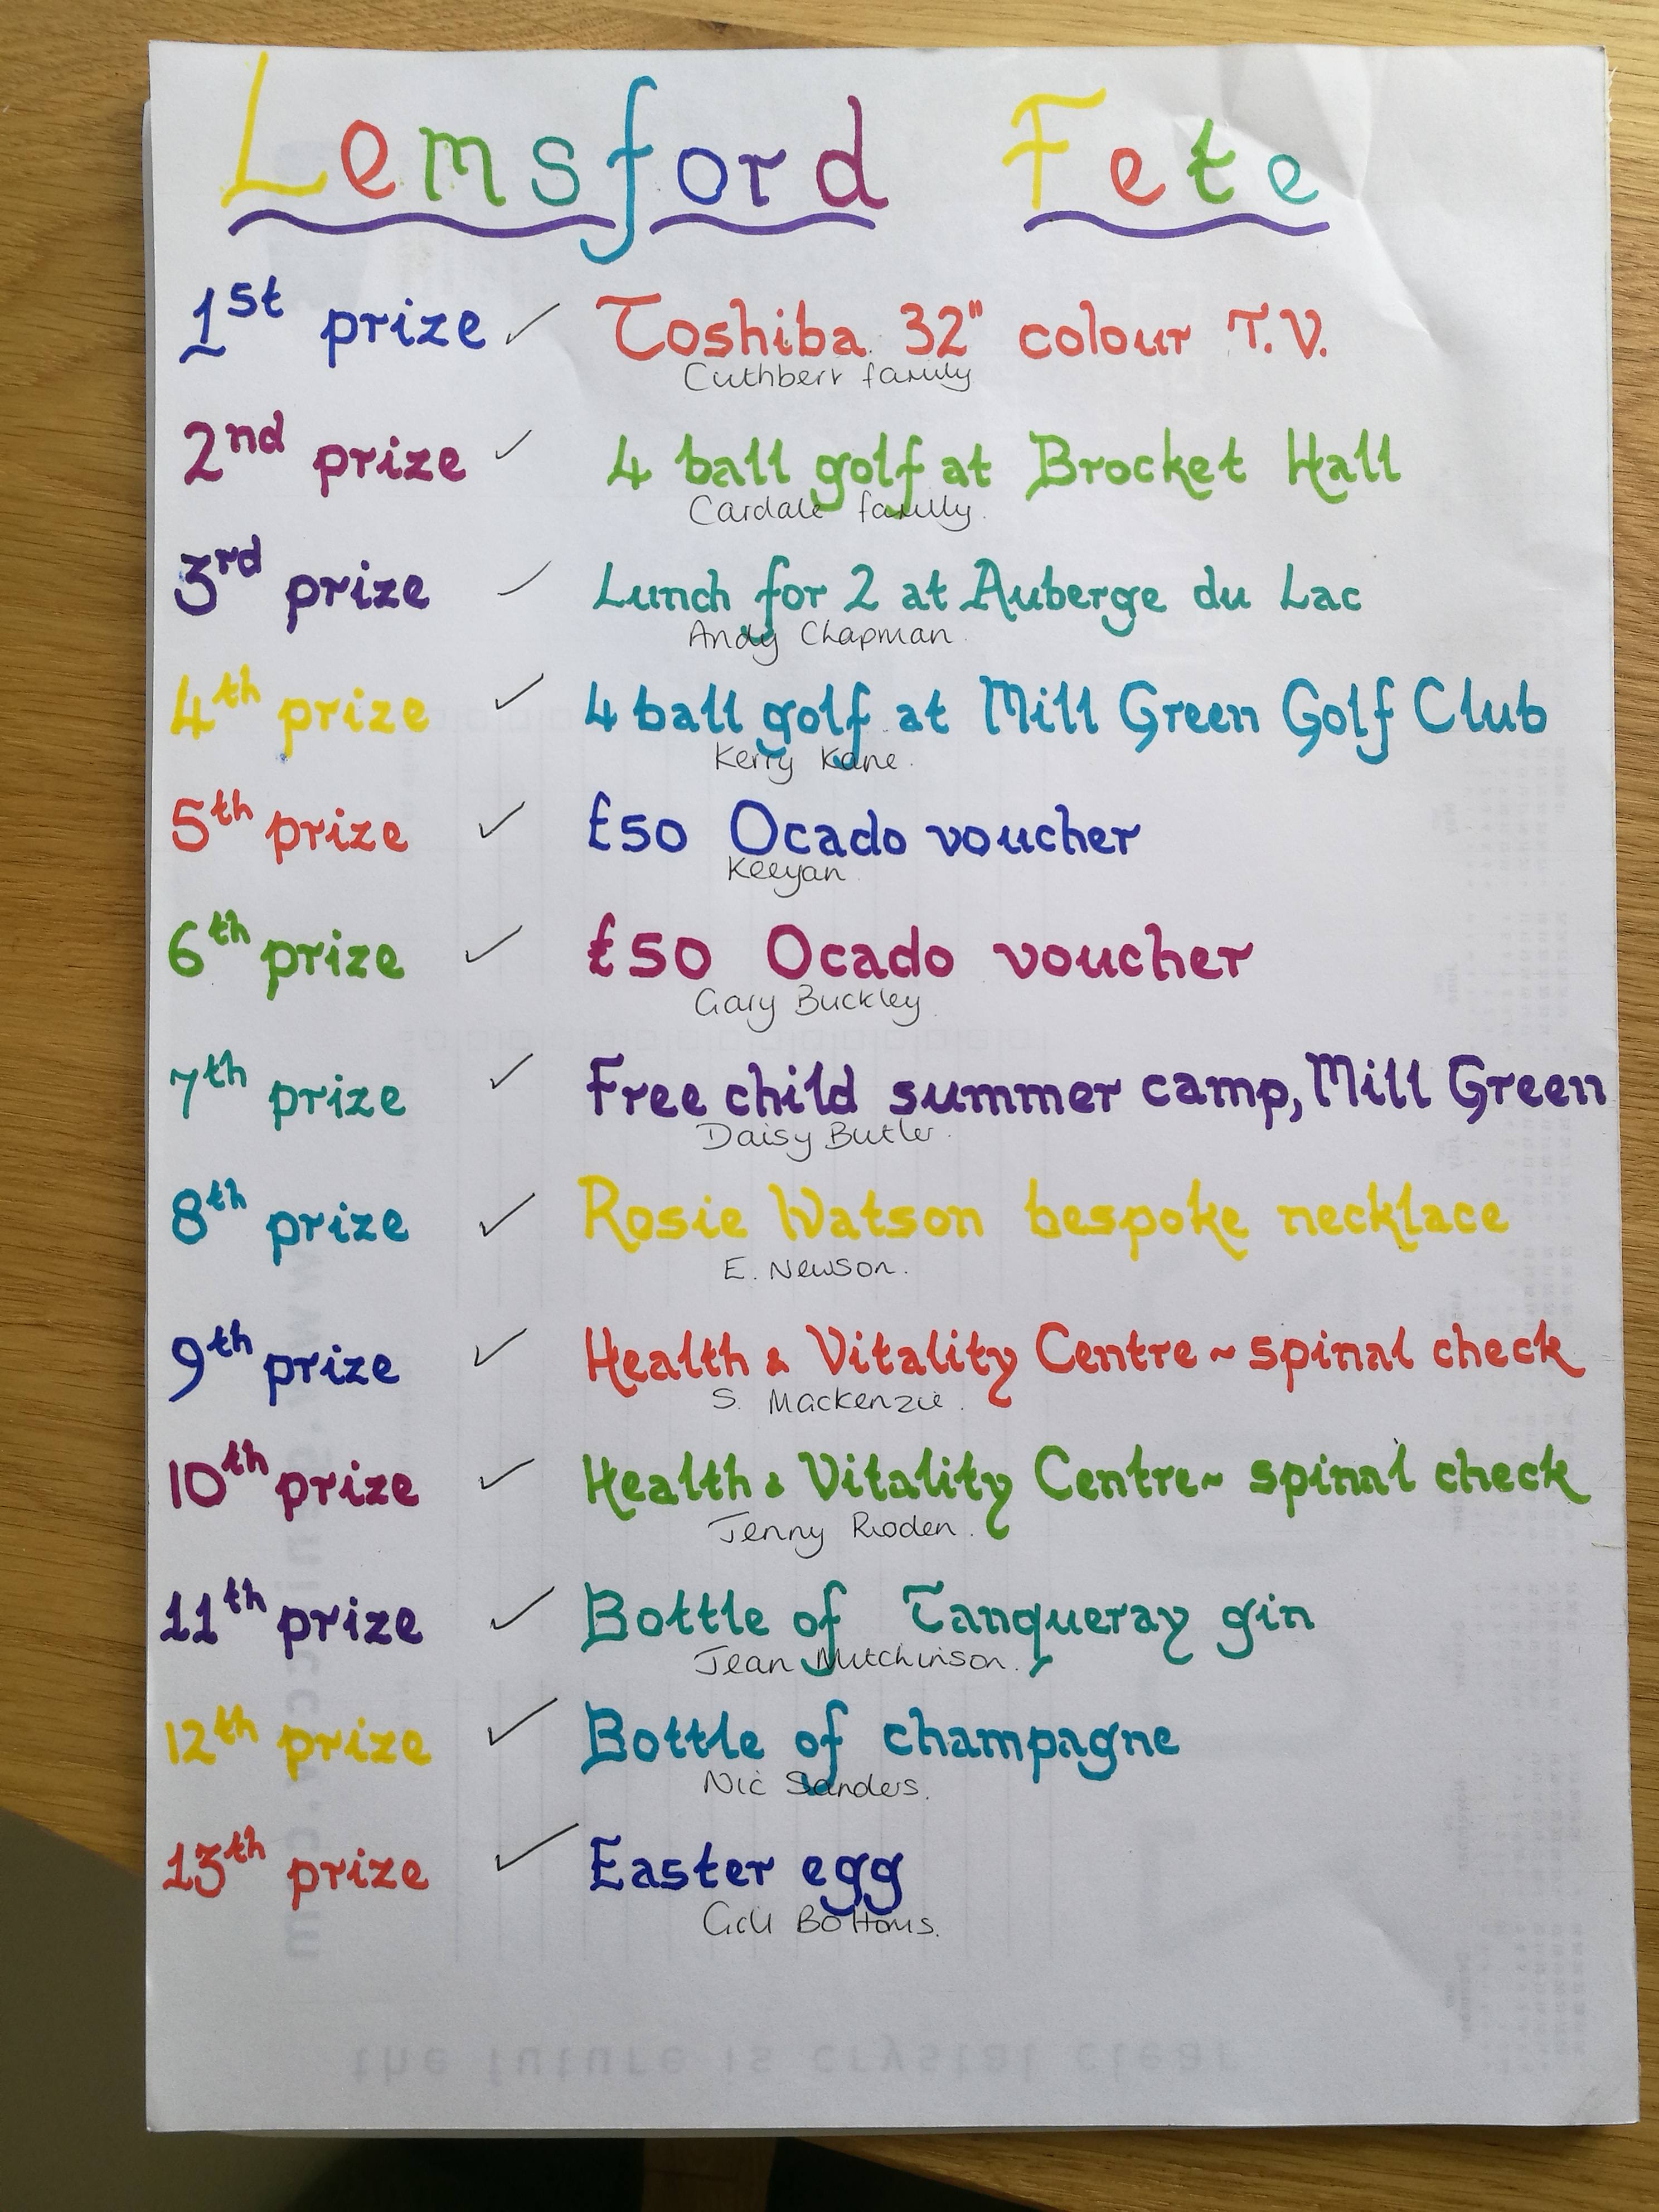 Lemsford Fete
1st prize ✓ Toshiba 32" colour T.V.
Cuthbert family
2nd prize ✓ 4 ball golf at Brocket Hall
Cardale family.
3rd prize ✓ Lunch for 2 at Auberge du Lac
Andy Chapman.
4th prize ✓ 4 ball golf at Mill Green Golf Club
Kerry Kane.
5th prize ✓ £50 Ocado voucher
Keeyan
6th prize ✓ £50 Ocado voucher
Gary Buckley.
7th prize ✓ Free child summer camp, Mill Green
Daisy Butler.
8th prize ✓ Rosie Watson bespoke necklace
E. Newson.
9th prize ✓ Health & Vitality Centre ~ spinal check
S. Mackenzie.
10th prize ✓ Health & Vitality Centre ~ spinal check
Jenny
11th prize ✓ Bottle of Tanqueray gin
Jean
12th prize ✓ Bottle of champagne
Nic Sanders.
13th prize ✓ Easter egg
Bottoms.
the future is crystal clear